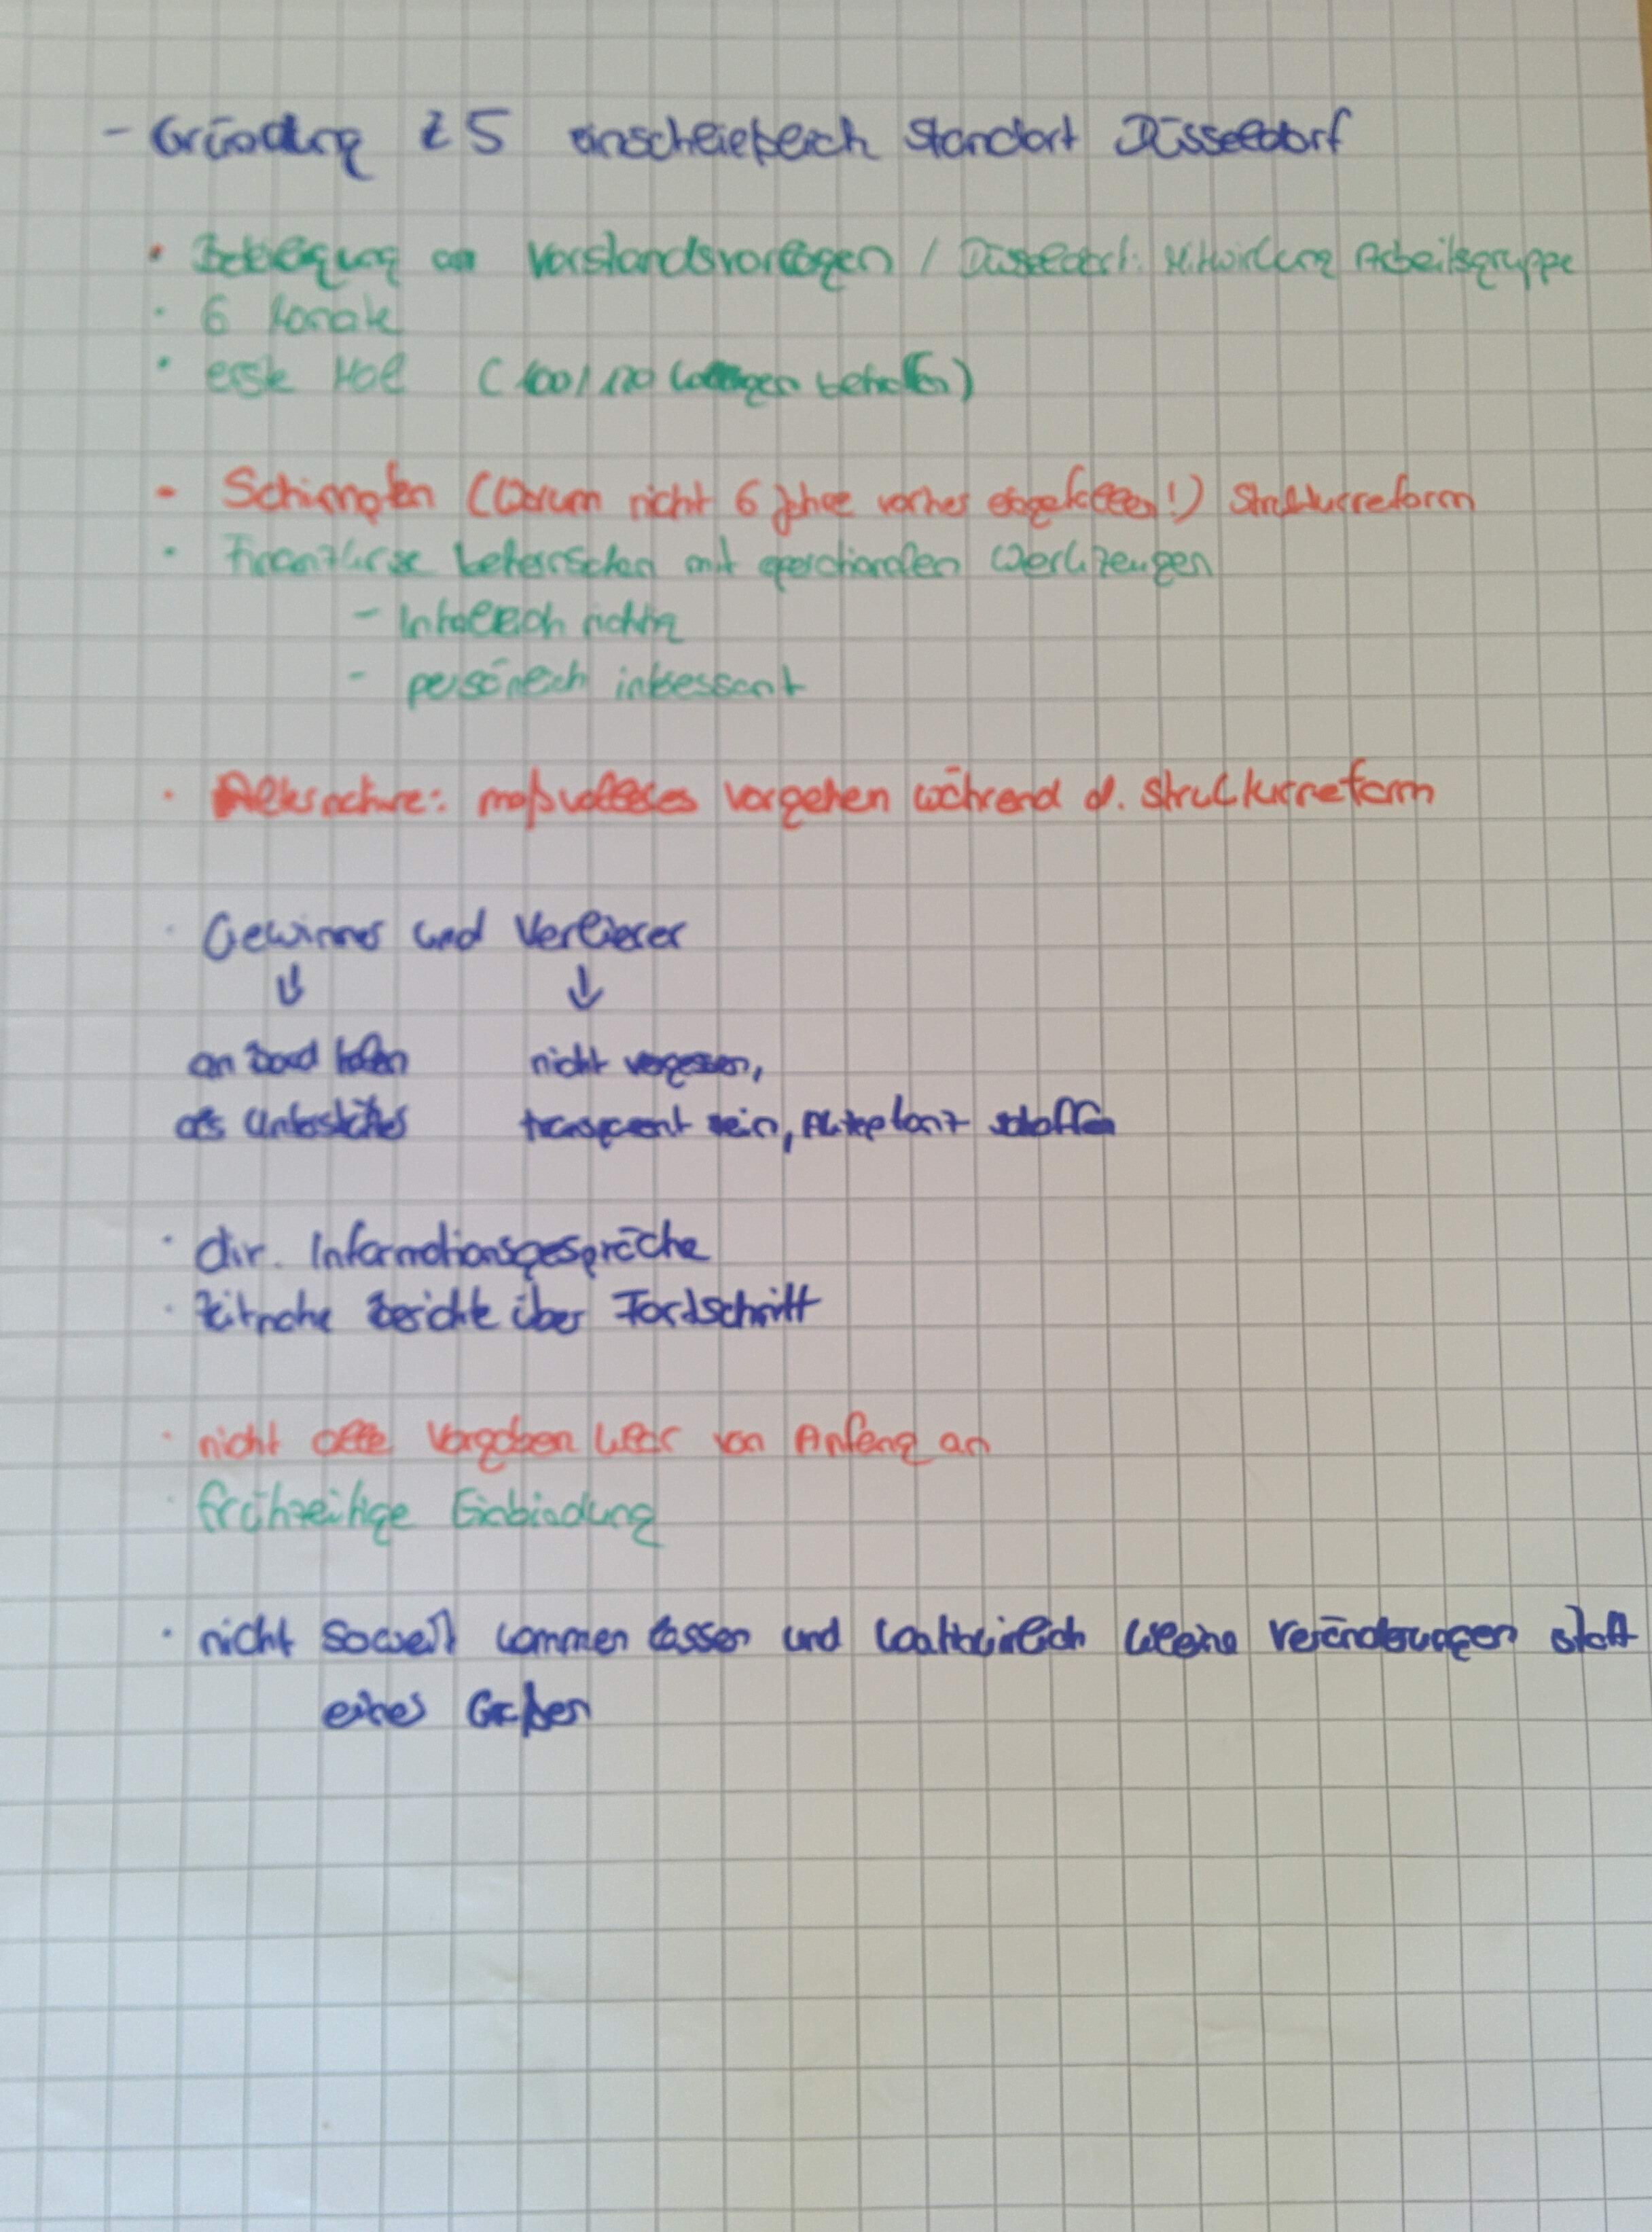 - Gründung Z5 einschließlich Standort Düsseldorf
• Beteiligung an Vorstandsvorlagen / Düsseldorf: Mitwirkung Arbeitsgruppe
• 6 Monate
• erste Mal (100/120 Kollegen betroffen)
• Schimpfen (Warum nicht 6 Jahre vorher eingefallen!) Strukturreform
• Finanzkrise beherrschen mit Werkzeugen
- Inhaltlich richtig
- persönlich interessant
• maßvolleres vorgehen während d. Strukturreform
• Gewinner und Verlierer
↓ ↓
an Board holen nicht vergessen,
als Unterstützer transparent sein, Akzeptanz schaffen
• dir. Informationsgespräche
• Zeitnahe Berichte über Fordschritt
• nicht alle Vorgaben klar von Anfang an
• frühzeitige Einbindung
• nicht soweit kommen lassen und kontinuierlich kleine Veränderungen statt
eines Großen